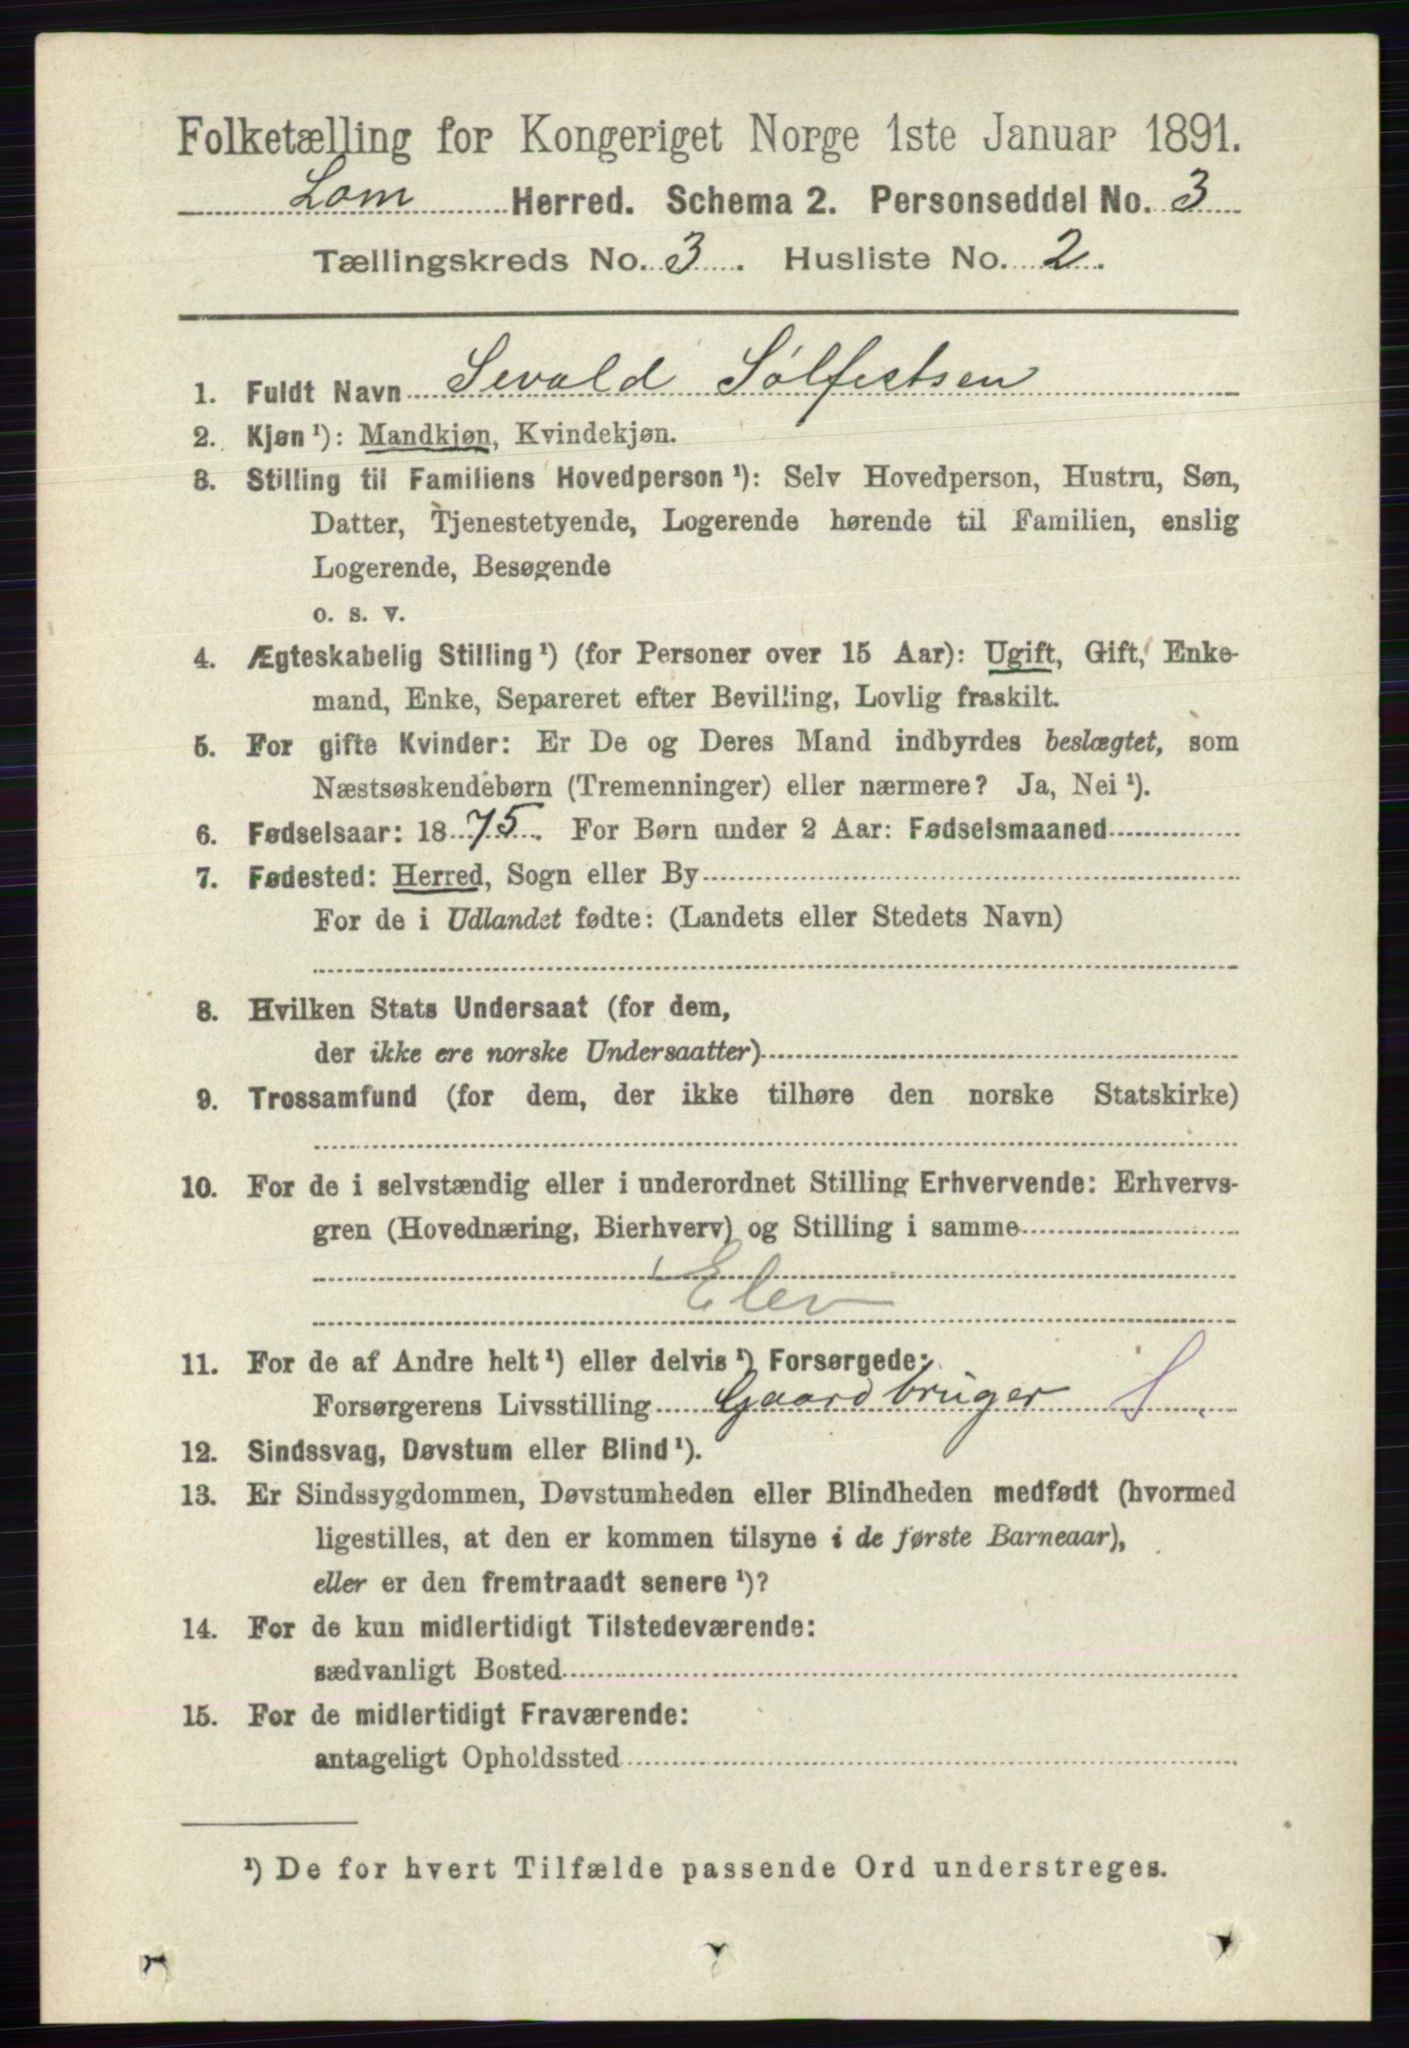 Folketælling for Kongeriget Norge 1ste Januar 1891.
Lom Herred. Schema 2. Personseddel No. 3
Tællingskreds No. 3. Husliste No. 2.
1. Fuldt Navn Sevald Sølfestsen
2. Kjøn¹): Mandkjøn, Kvindekjøn.
3. Stilling til Familiens Hovedperson¹): Selv Hovedperson, Hustru, Søn,
Datter, Tjenestetyende, Logerende hørende til Familien, enslig
Logerende, Besøgende
o. s. v.
4. Ægteskabelig Stilling¹) (for Personer over 15 Aar): Ugift, Gift, Enke-
mand, Enke, Separeret efter Bevilling, Lovlig fraskilt.
5. For gifte Kvinder: Er De og Deres Mand indbyrdes beslægtet, som
Næstsøskendebørn (Tremenninger) eller nærmere? Ja, Nei¹).
6. Fødselsaar: 1875. For Børn under 2 Aar: Fødselsmaaned
7. Fødested: Herred, Sogn eller By
For de i Udlandet fødte: (Landets eller Stedets Navn)
8. Hvilken Stats Undersaat (for dem,
der ikke ere norske Undersaatter)
9. Trossamfund (for dem, der ikke tilhøre den norske Statskirke)
10. For de i selvstændig eller i underordnet Stilling Erhvervende: Erhvervs-
gren (Hovednæring, Bierhverv) og Stilling i samme
Elev
11. For de af Andre helt¹) eller delvis¹) Forsørgede:
Forsørgerens Livsstilling Gaardbruger S.
12. Sindssvag, Døvstum eller Blind¹).
13. Er Sindssygdommen, Døvstumheden eller Blindheden medfødt (hvormed
ligestilles, at den er kommen tilsyne i de første Barneaar),
eller er den fremtraadt senere¹)?
14. For de kun midlertidigt Tilstedeværende:
sædvanligt Bosted
15. For de midlertidigt Fraværende:
antageligt Opholdssted
¹) De for hvert Tilfælde passende Ord understreges.